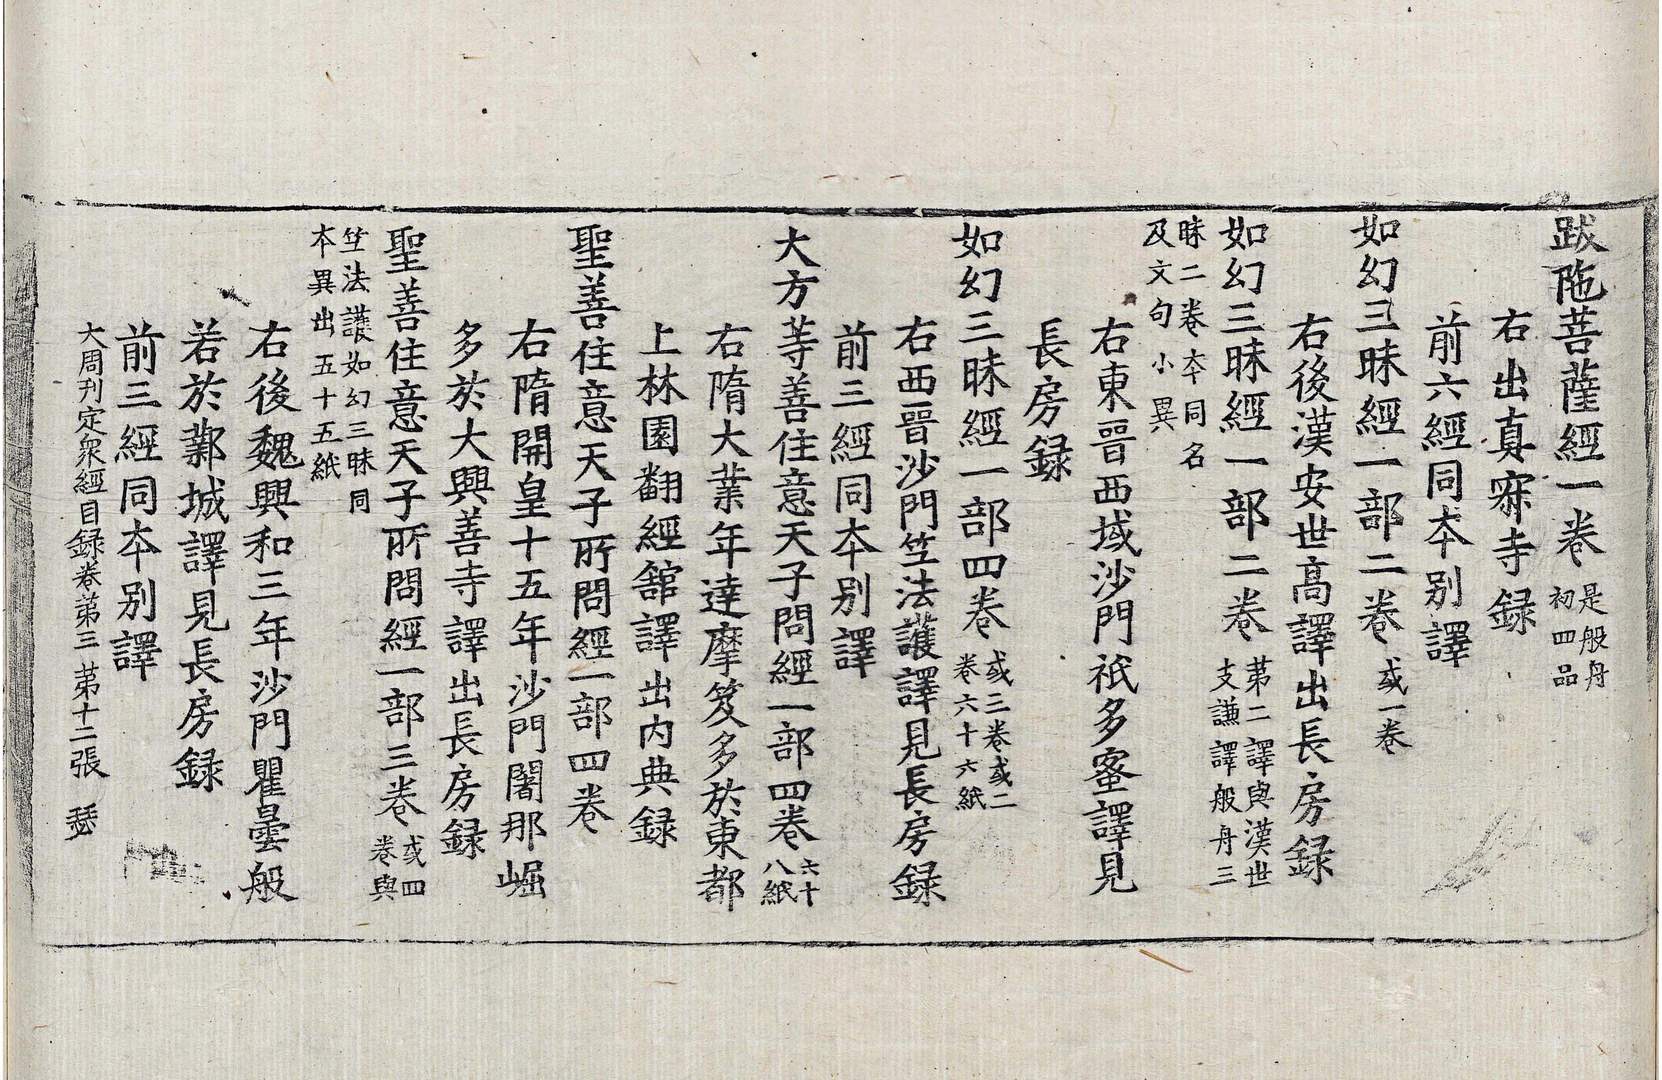 跋陁菩薩經一卷是般舟初四品
右出真寂寺録
前六經同夲別譯
如幻三昧經一部二卷或一卷
右後漢安世高譯出長房録
如幻三昧經一部二卷苐二譯與漢世支謙譯般舟三
昧二卷夲同名及文句小異
右東晋西域沙門祇多蜜譯見
長房録
如幻三昧經一部四卷或三卷或二卷六十六紙
右西晋沙門竺法護譯見長房録
前三經同夲別譯
大方䓁善住意天子問經一部四卷六十八紙
右隋大業年達摩笈多於東都
上林園翻經舘譯出内典録
聖善住意天子所問經一部四卷
右隋開皇十五年沙門闍那崛
多於大興善寺譯出長房録
聖善住意天子所問經一部三卷或四卷與
竺法護如幻三昧同夲異出五十五紙
右後魏興和三年沙門瞿曇般
若於鄴城譯見長房録
前三經同夲別譯
大周刊定衆經目録卷苐三 苐十二張 瑟